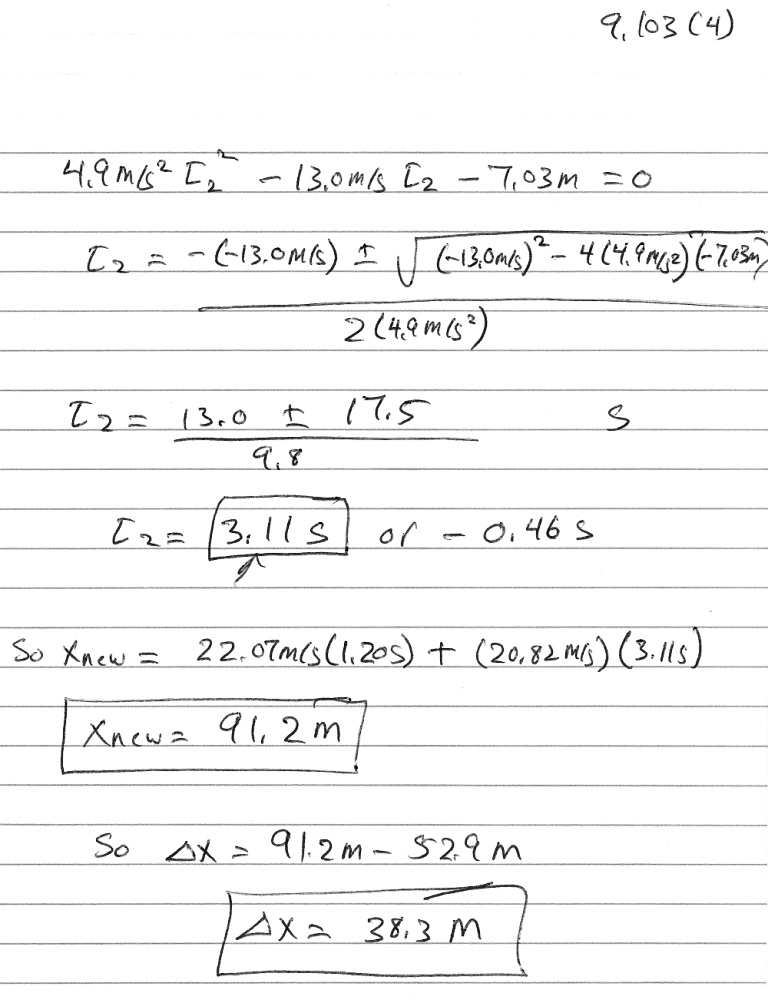 9.103 (4)
4.9 m/s² t₂² - 13.0 m/s t₂ - 7.03 m = 0
t₂ = -(-13.0 m/s) ± √((-13.0 m/s)² - 4(4.9 m/s²)(-7.03m)
2(4.9 m/s²)
t₂ = 13.0 ± 17.5 s
9.8
t₂ = 3.11 s or - 0.46 s
So Xnew = 22.07 m/s (1.20s) + (20.82 m/s)(3.11s)
Xnew = 91.2 m
So Δx = 91.2 m - 52.9 m
Δx = 38.3 m